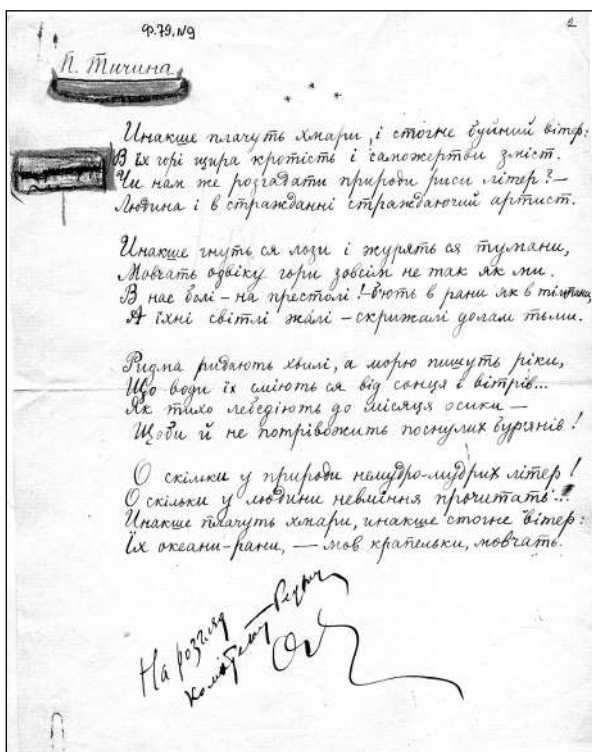 Ф.79.N9
2
П. Тичина
* * *
Инакше плачуть хмари, і стогне буйний вітер:
В їх горі щира кротість і саможертви зміст.
Чи нам же розгадати природи риси літер? —
Людина і в стражданні страждаючий артист.
Инакше гнуть ся лози і журять ся тумани,
Мовчать одвіку гори зовсім не так як ми.
В нас болі — на престолі! — бють в рани як в тімпани,
А їхні світлі жалі — скрижалі долам тьми.
Ридма ридають хвилі, а морю пишуть ріки,
Що води їх сміють ся від сонця і вітрів...
Як тихо лебедіють до місяця осики —
Щоби й не потрівожить поснулих бурянів!
О скільки у природи немудро-мудрих літер!
О скільки у людини невміння прочитать...
Инакше плачуть хмари, инакше стогне вітер:
Їх океани-рани, — мов крапельки, мовчать.
На розгляд